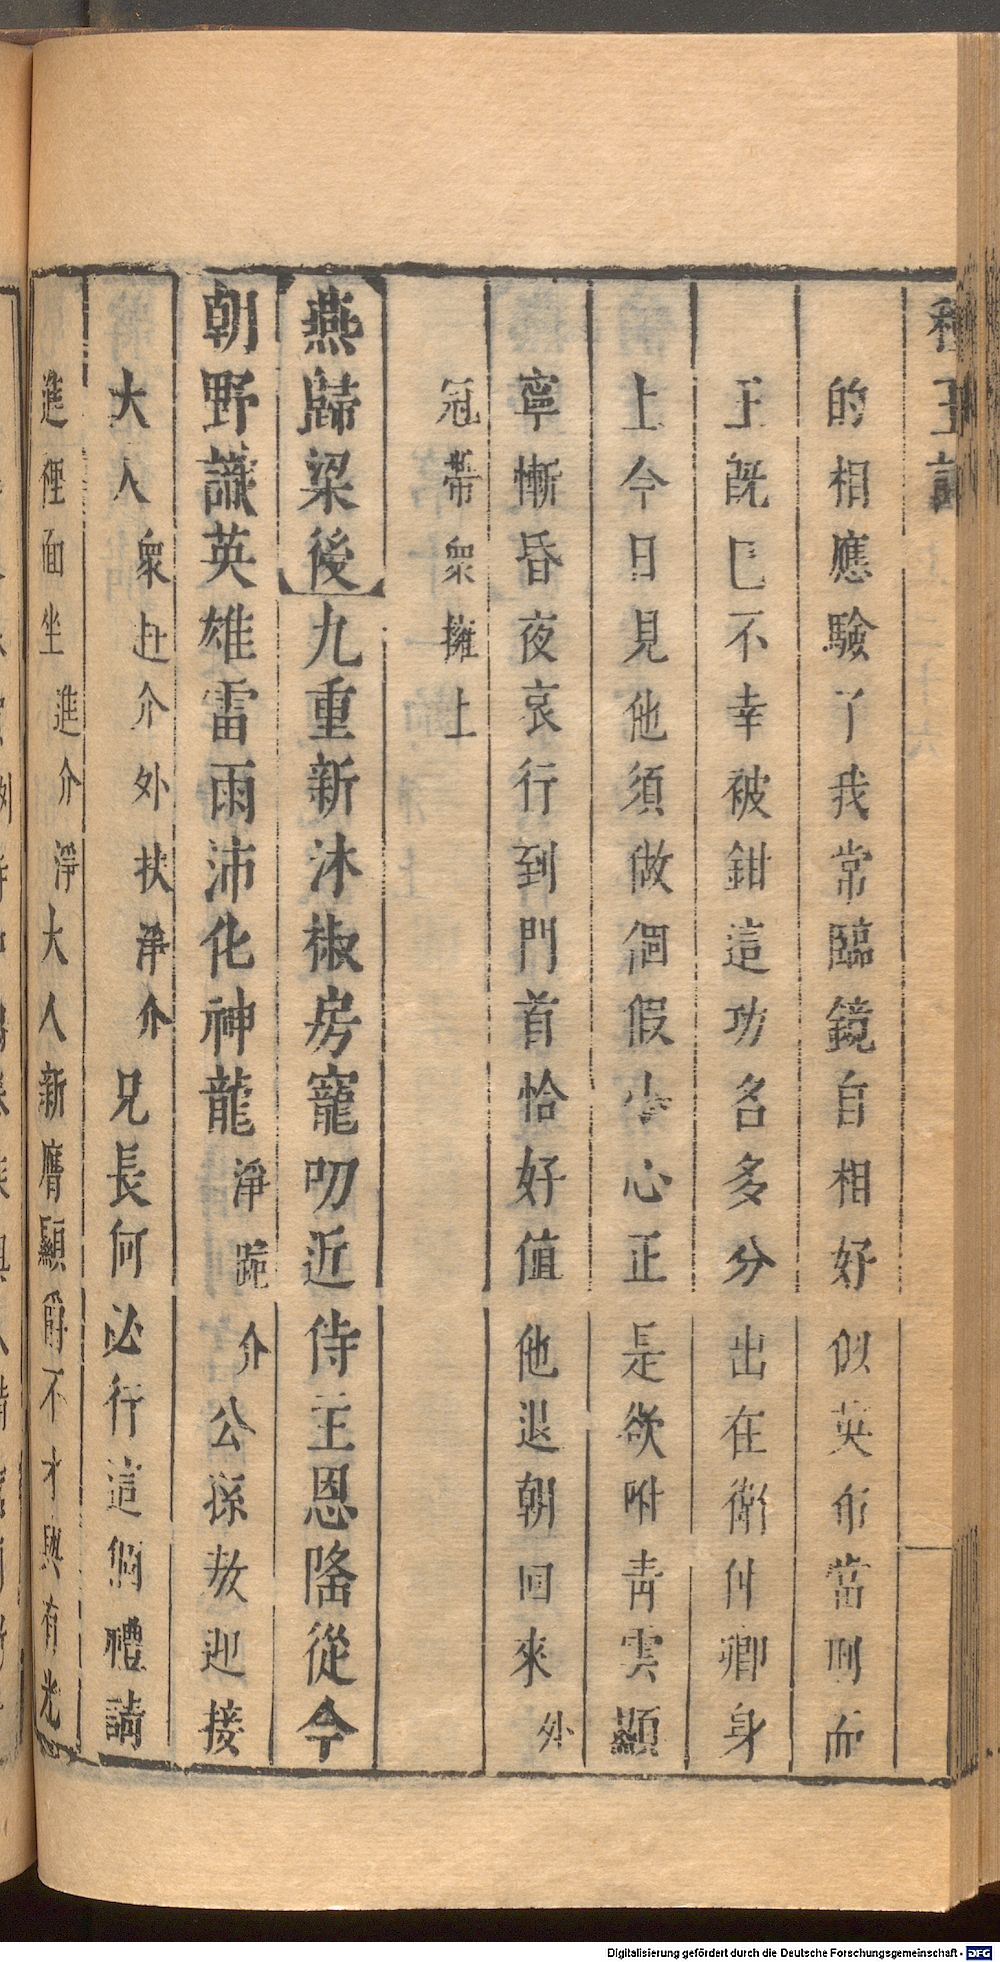 種玉記
的相應驗了我常臨鏡自相好似英布當刑而
王既已不幸被鉗這功名多分出在衛什卿身
上今日見他須做個假小心正是欲附青雲顯
寧慚昏夜哀行到門首恰好值他退朝回來外
冠帶眾擁上
燕歸梁後九重新沐椒房寵叨近侍王恩隆從今
朝野識英雄雷雨沛化神龍淨跪介公孫敖迎接
大人眾赶介外扶淨介兄長何必行這個禮請
進裡面坐進介淨大人新膺顯爵不才與有光
Digitalisierung gefördert durch die Deutsche Forschungsgemeinschaft - DFG